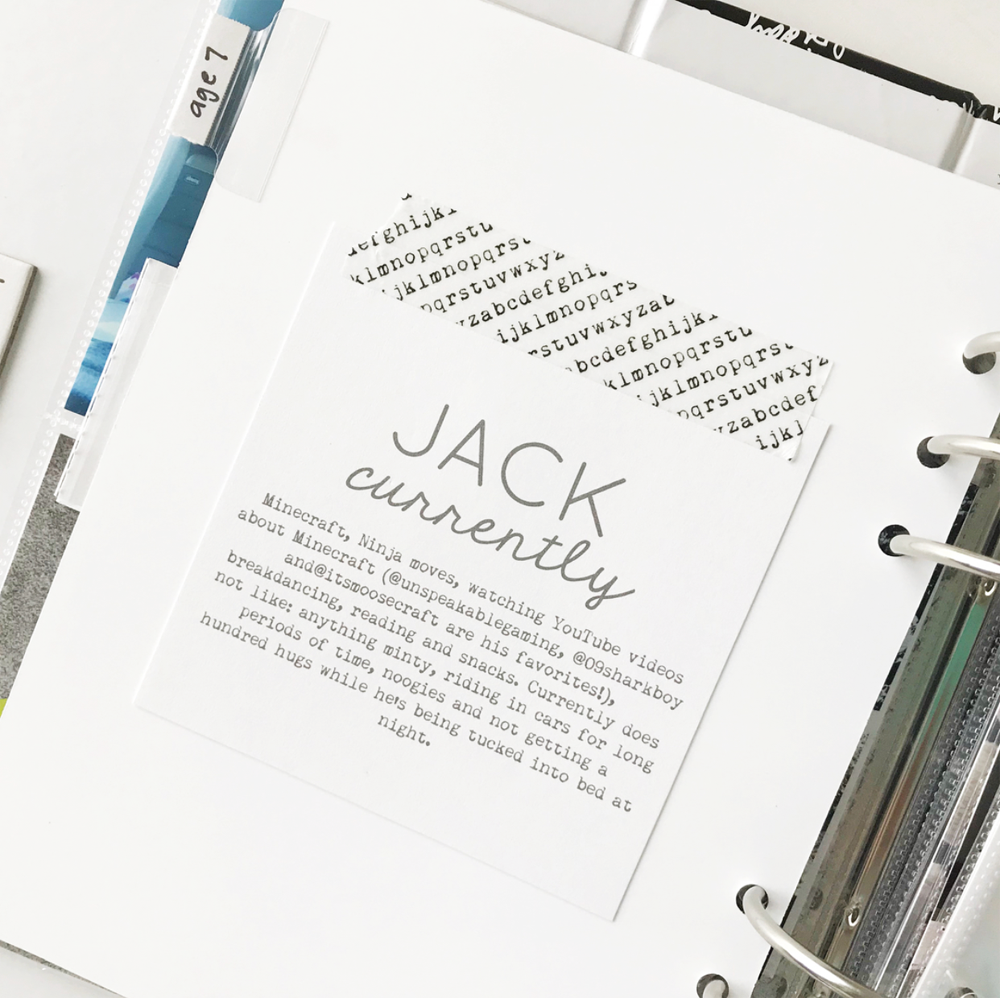 age 7
efghijk
klmnopqrstu
jklmnopqrst
pqrstuvwxyz
yzabcdefghi
ijklmnopqrs
rstuvwxyzab
bcdefghijk
klmnopqrstu
jklmnopqrs
pqrstuvwxyz
yzabcdef
ijkl
JACK
currently
Minecraft, Ninja moves, watching YouTube videos
about Minecraft (@unspeakablegaming, @09sharkboy
and@itsmoosecraft are his favorites!),
breakdancing, reading and snacks. Currently does
not like: anything minty, riding in cars for long
periods of time, noogies and not getting a
hundred hugs while he's being tucked into bed at
night.